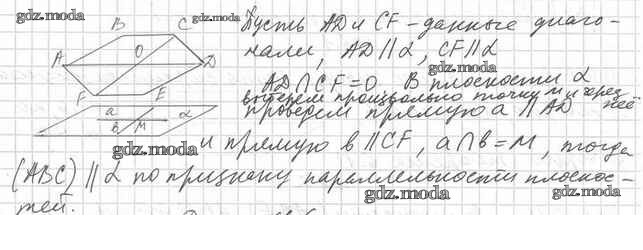 gdz.moda
gdz.moda
B
C
A
O
D
F
E
a
b
M
α
Пусть AD и CF – данные диаго-
нали, AD || α, CF || α
gdz.moda
AD ∩ CF = O В плоскости α
выберем произвольно точку M и через неё
проведем прямую a || AD
gdz.moda
и прямую в || CF, a ∩ в = M, тогда
(ABC) || α по признаку параллельности плоскос-
gdz.moda
gdz.moda
тей.